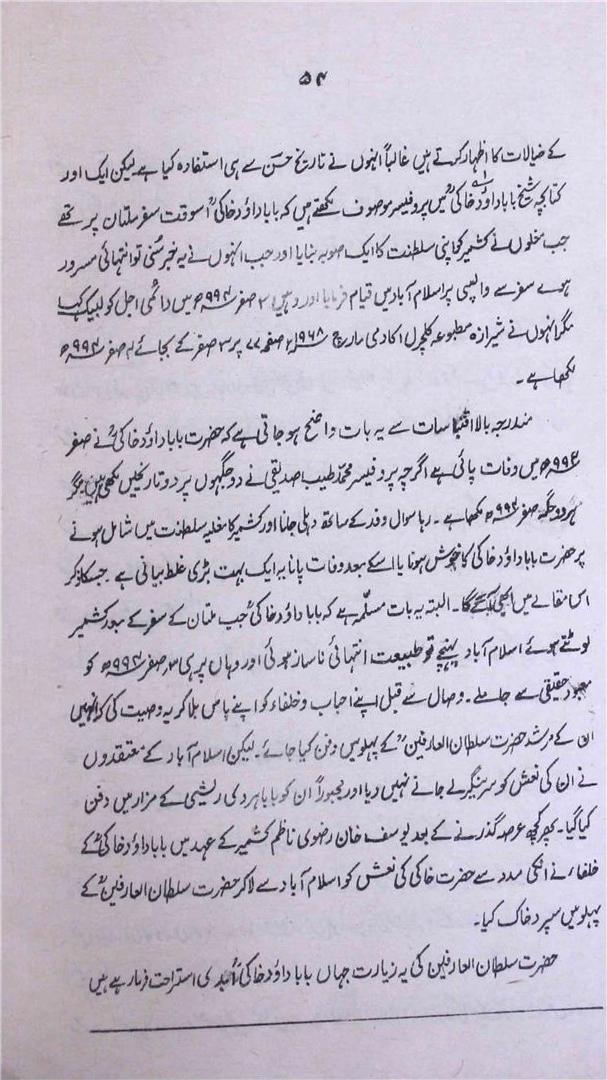 ۵۴
کے خیالات کا اظہار کرتے ہیں غالباً انہوں نے تاریخ حسن سے ہی استفادہ کیا ہے لیکن ایک اور
کتابچہ شیخ بابا داؤد خاکیؒ میں پروفیسر موصوف لکھتے ہیں کہ بابا داؤد خاکیؒ اسوقت سفر ملتان پر تھے
جب مغلوں نے کشمیر کو اپنی سلطنت کا ایک صوبہ بنایا اور جب انہوں نے یہ خبر سُنی تو انتہائی مسرور
ہوے سفر سے واپسی پر اسلام آباد میں قیام فرمایا اور وہیں ۳ صفر ۹۹۴ھ میں داعی اجل کو لبیک کہا
مگر انہوں نے شیرازہ مطبوعہ کلچرل اکادمی مارچ ۱۹۶۸ء صفحہ ۷۷ پر ۳ صفر کے بجائے صفر ۹۹۴ھ
لکھا ہے۔
مندرجہ بالا اقتباسات سے یہ بات واضح ہو جاتی ہے کہ حضرت بابا داؤد خاکیؒ نے صفر
۹۹۴ھ میں وفات پائی ہے اگرچہ پروفیسر محمد طیب صدیقی نے دو جگہوں پر دو تاریخیں لکھی ہیں مگر
ہر دو جگہ صفر ۹۹۴ھ لکھا ہے۔ رہا سوال وفد کے ساتھ دہلی جانا اور کشمیر کا مغلیہ سلطنت میں شامل ہونے
پر حضرت بابا داؤد خاکی کا خوش ہونا یا اسکے بعد وفات پانا یہ ایک بہت بڑی غلط بیانی ہے جسکا ذکر
اس مقالے میں ابھی آئے گا۔ البتہ یہ بات مسلّم ہے کہ بابا داؤد خاکیؒ جب ملتان کے سفر کے بعد کشمیر
لوٹتے ہوئے اسلام آباد پہنچے تو طبیعت انتہائی ناساز ہوئی اور وہاں پر ہی ۳ صفر ۹۹۴ھ کو
معبود حقیقی سے جا ملے۔ وصال سے قبل اپنے احباب و خلفاء کو اپنے پاس بلا کر یہ وصیت کی کہ انہیں
ان کے مرشد حضرت سلطان العارفینؒ کے پہلو میں دفن کیا جائے۔ لیکن اسلام آباد کے معتقدوں
نے ان کی نعش کو سرینگر لے جانے نہیں دیا اور مجبوراً ان کو بابا ہردی ریشی کے مزار میں دفن
کیا گیا۔ پھر کچھ عرصہ گذرنے کے بعد یوسف خان رضوی ناظم کشمیر کے عہد میں بابا داؤد خاکیؒ کے
خلفاء نے انکی مدد سے حضرت خاکی کی نعش کو اسلام آباد سے لا کر حضرت سلطان العارفینؒ کے
پہلو میں سپرد خاک کیا۔
حضرت سلطان العارفین کی یہ زیارت جہاں بابا داؤد خاکیؒ ابدی استراحت فرما رہے ہیں